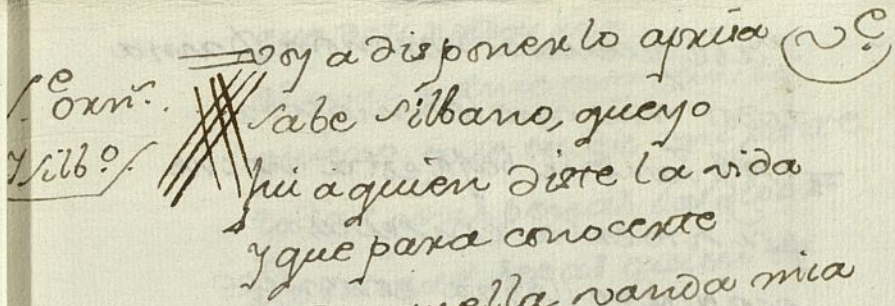 voy a disponerlo aprisa vᵉ
Sᵉ Ornᵃ.
y Silbᵒ
Sabe Silbano, que yo
fui a quien diste la vida
y que para conocerte
vanda mia